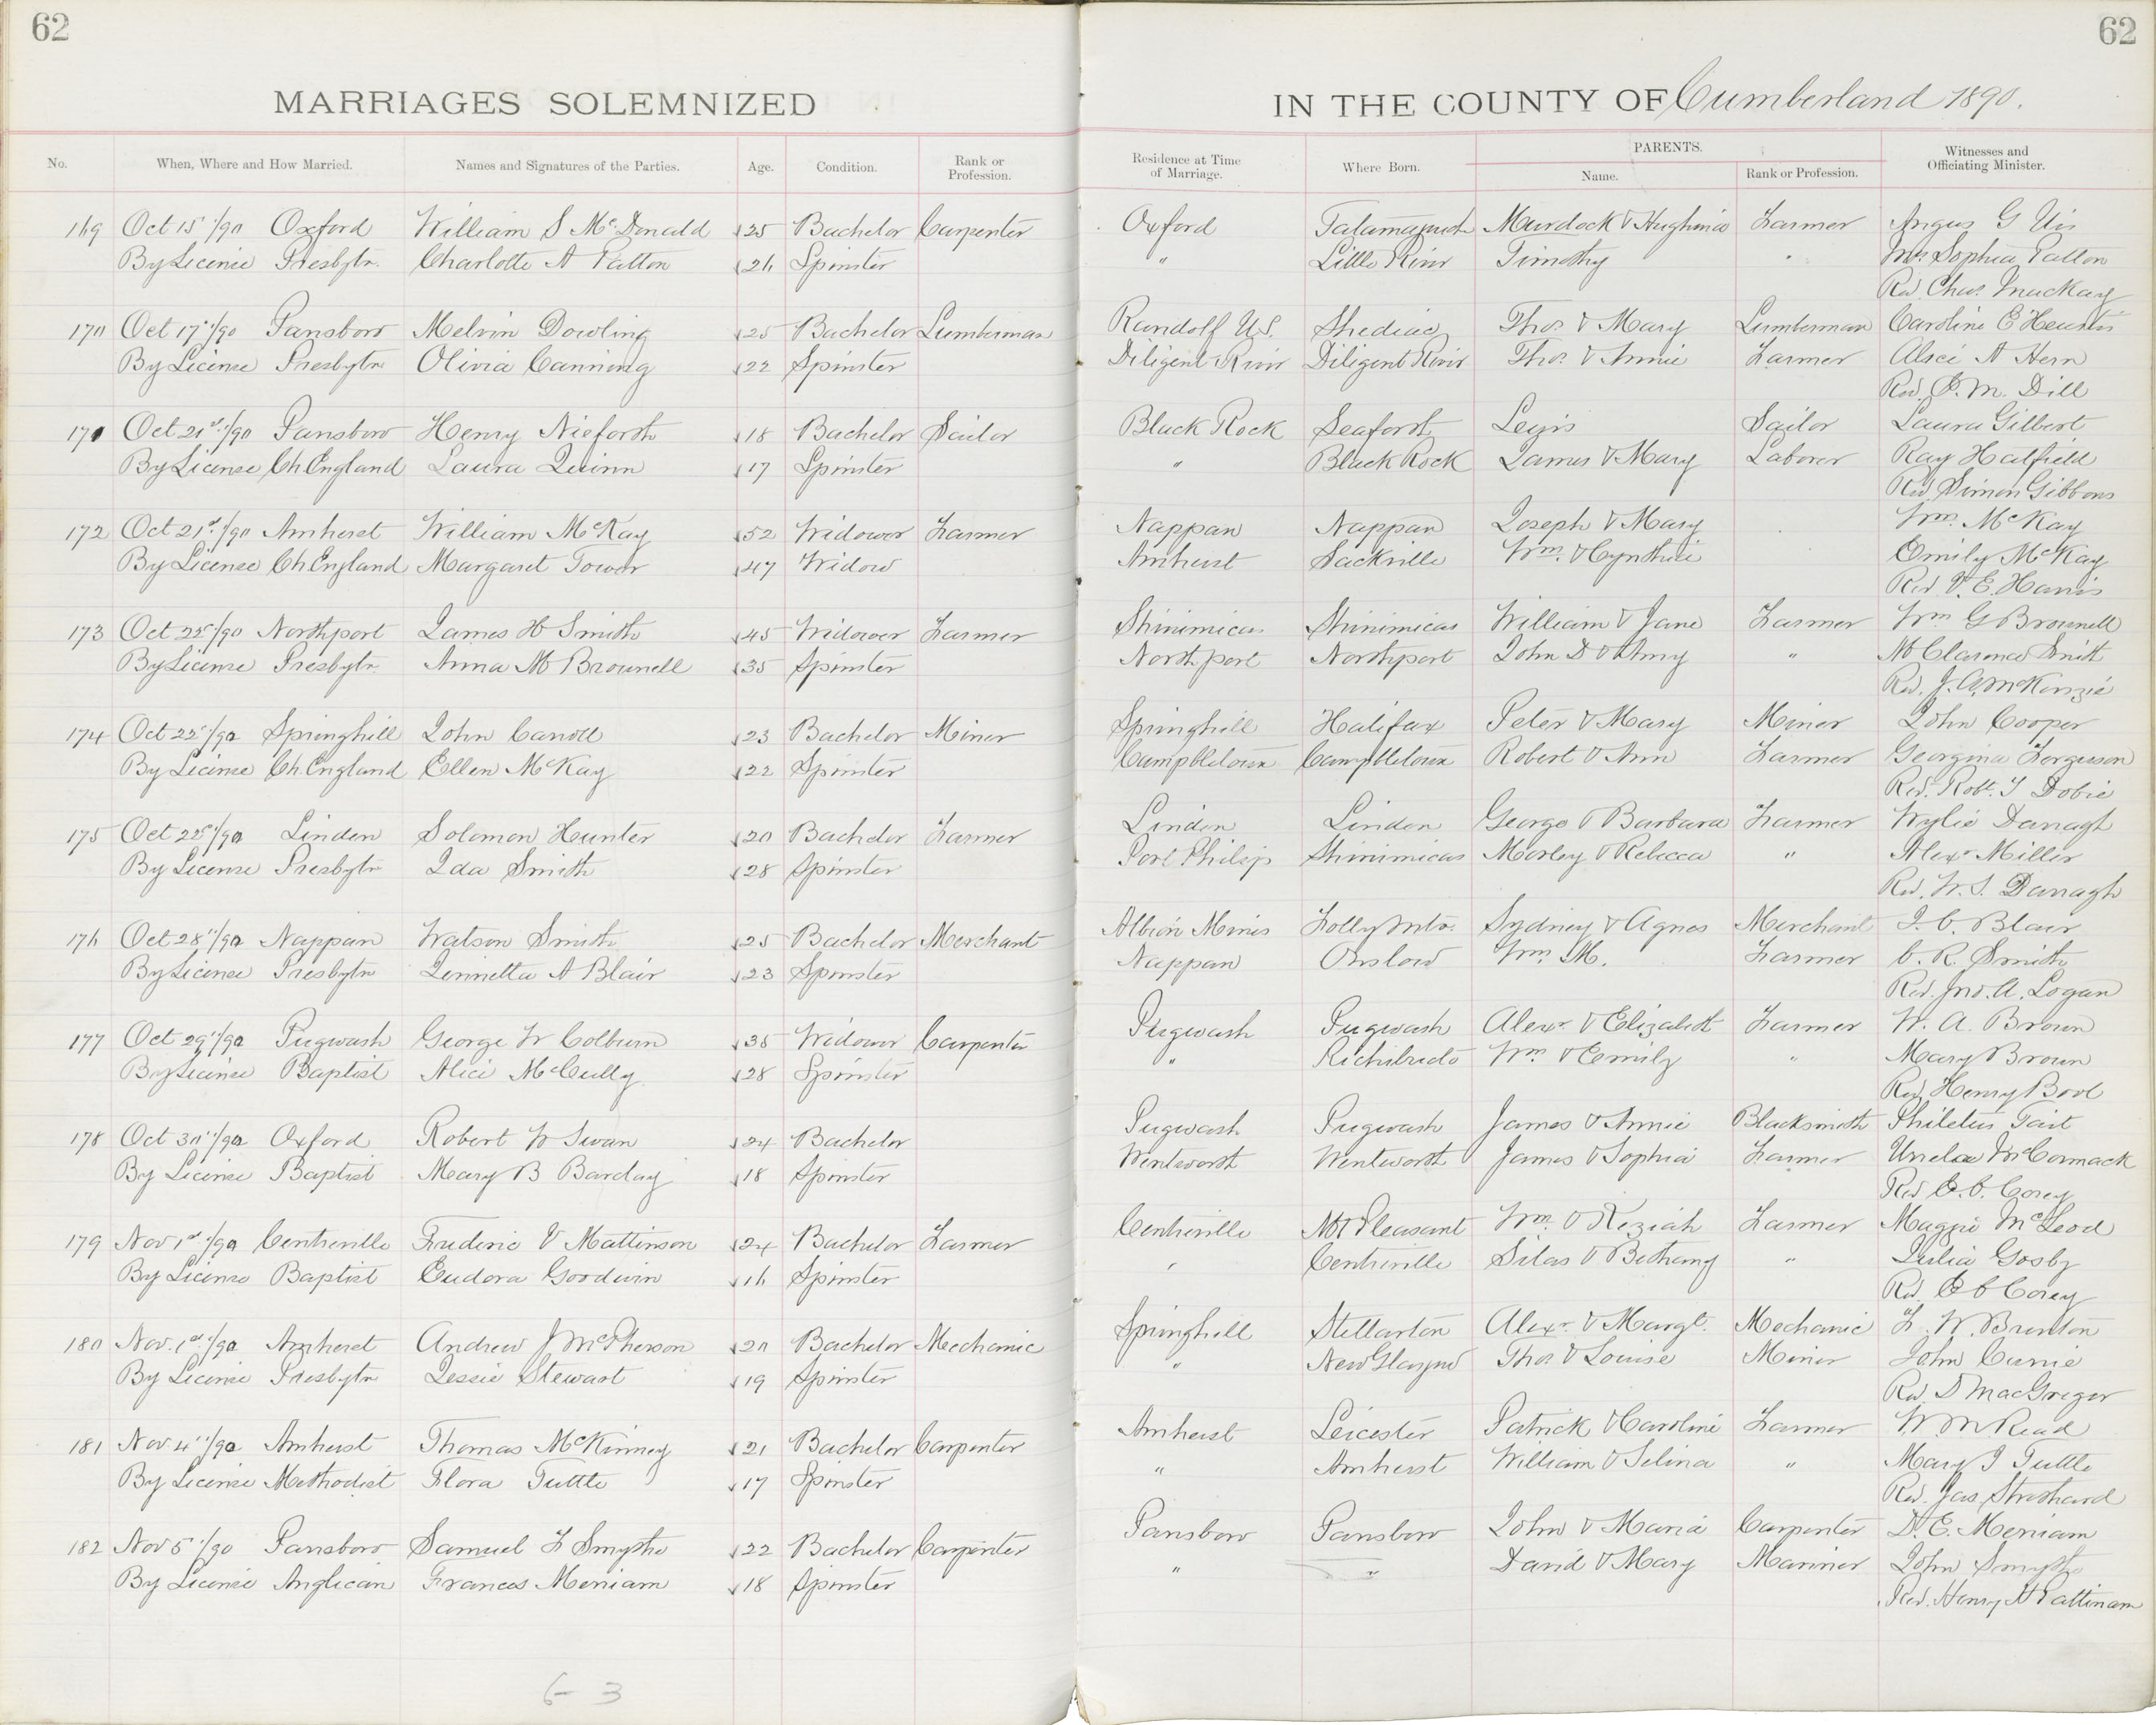 62
62
MARRIAGES SOLEMNIZED
IN THE COUNTY OF Cumberland 1890.
No. When, Where and How Married. Names and Signatures of the Parties. Age. Condition. Rank or Profession. Residence at Time of Marriage. Where Born. PARENTS. Name. Rank or Profession. Witnesses and Officiating Minister.
169 Oct 15"/90 Oxford William S McDonald 25 Bachelor Carpenter Oxford Murdock & Hughina Farmer Angus G
By License Presbytn Charlotte A Patton 26 Spinster " Little River Timothy " Mrs Sophia Patton
Rev. Chas. MacKay
170 Oct 17"/90 Parrsboro Melvin Dowling 25 Bachelor Lumberman Rundolf U.S. Shediac Thos. & Mary Lumberman Caroline E
By License Presbytn Olivia Canning 22 Spinster Diligent River Diligent River Thos. & Annie Farmer A Hern
Rev. E. M. Dill
171 Oct 21st/90 Parrsboro Henry Nieforth 18 Bachelor Sailor Black Rock Seaforth Sailor Laura Gilbert
By License Ch England Laura Quinn 17 Spinster " Black Rock James & Mary Laborer Ray Hatfield
Rev Simon Gibbons
172 Oct 21st/90 Amherst William McKay 52 Widower Farmer Nappan Nappan Joseph & Mary Wm. McKay
By License Ch England Margaret Tower 47 Widow Amherst Sackville Wm. & Cynthia Emily McKay
Rev. V. E. Harris
173 Oct 22"/90 Northport James H Smith 45 Widower Farmer Shinimicas Shinimicas William & Jane Farmer Wm G Brownell
By License Presbytn. Anna M Brownell 35 Spinster Northport Northport John D & Amy " M Clarence Smith
Rev. J. A. McKenzie
174 Oct 22"/90 Springhill John Carroll 23 Bachelor Miner Springhill Halifax Peter & Mary Miner John Cooper
By License Ch. England Ellen McKay 22 Spinster Campbletown Campbletown Robert & Ann Farmer Georgina Ferguson
Rev. Robt. T Dobie
175 Oct 22"/90 Linden Solomon Hunter 20 Bachelor Farmer Linden Linden George & Barbara Farmer Wylie Darragh
By License Presbytn Ida Smith 28 Spinster Port Philip Shinimicas Morley & Rebecca " Alexr Miller
Rev. W. S. Darragh
176 Oct 28"/90 Nappan Watson Smith 25 Bachelor Merchant Albion Mines Folly Mtn. Sydney & Agnes Merchant J. C. Blair
By License Presbytn A Blair 23 Spinster Nappan Onslow Wm. M. Farmer C. R. Smith
Rev. Jno. A. Logan
177 Oct 29"/90 Pugwash George W Colburn 35 Widower Carpenter Pugwash Pugwash Alexr. & Elizabeth Farmer W. A. Brown
By License Baptist Alice McCully 28 Spinster " Richibucto Wm & Emily " Mary Brown
Rev Henry Bool
178 Oct 30"/90 Oxford Robert W Swan 24 Bachelor Pugwash Pugwash James & Annie Blacksmith Philetus Tait
By License Baptist Mary B Barclay 18 Spinster Wentworth Wentworth James & Sophia Farmer McCormack
Rev E. C. Corey
179 Nov 1st/90 Centreville Frederic V Mattinson 24 Bachelor Farmer Centreville Mt Pleasant Wm. & Keziah Farmer Maggie McLeod
By License Baptist Eudora Goodwin 16 Spinster " Centreville Silas & Bethany " Julia Gosby
Rev. E C Corey
180 Nov. 1st/90 Amherst Andrew J McPherson 20 Bachelor Mechanic Springhill Stellarton Alexr. & Margt. Mechanic F. W. Brenton
By License Presbytn Jessie Stewart 19 Spinster " New Glasgow Thos. & Louise Miner John Currie
Rev D MacGregor
181 Nov 4"/90 Amherst Thomas McKinney 21 Bachelor Carpenter Amherst Leicester Patrick & Caroline Farmer W. M Read
By License Methodist Flora Tuttle 17 Spinster " Amherst William & Selina " Mary J Tuttle
Rev. Jas. Strothard
182 Nov 5"/90 Parrsboro Samuel F Smythe 22 Bachelor Carpenter Parrsboro Parrsboro John & Maria Carpenter D. E. Merriam
By License Anglican Frances Merriam 18 Spinster " " David & Mary Mariner John Smyth
Rev. Henry A
6-3